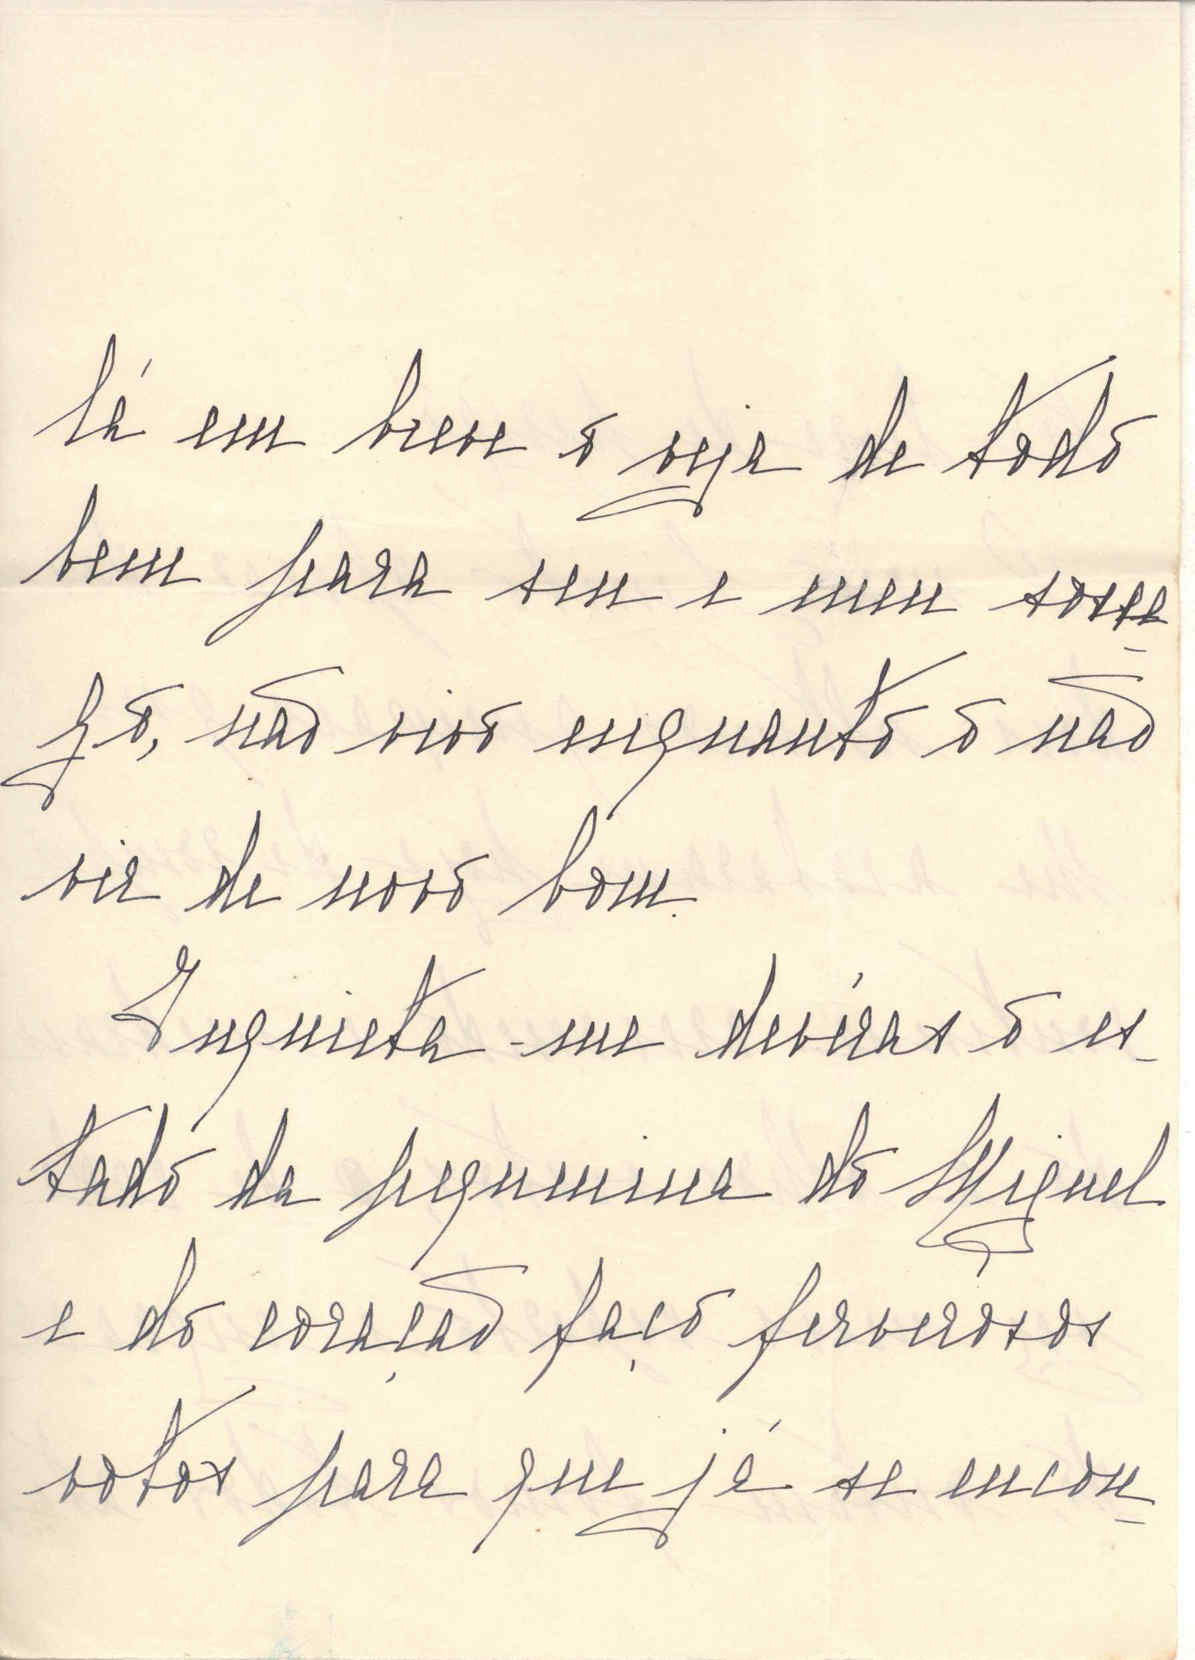 lá em breve o veja de todo
bem para seu e meu sosse
go, não vivo enquanto o não
vir de novo bom.
Inquieta-me devéras o es-
tado da pequenina do Miguel
e do coração faço fervorosos
votos para que já se encon-